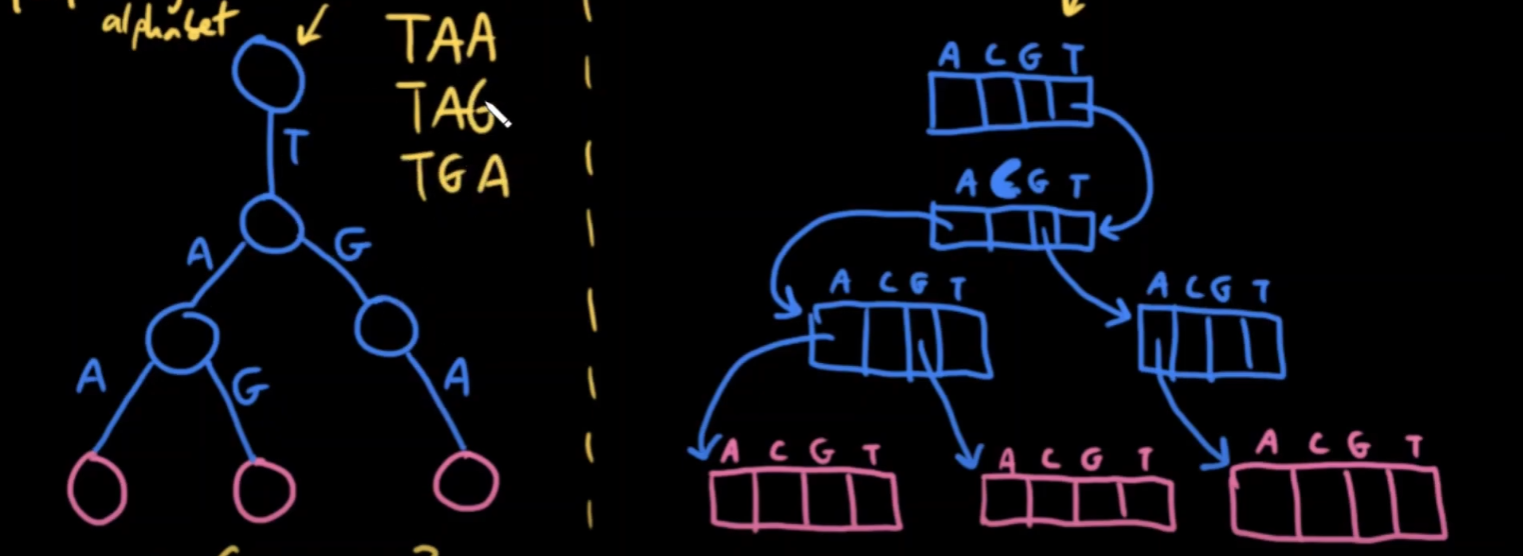 alphabet
TAA
TAG
TGA
T
A G
A G A
A C G T
A C G T
A C G T
A C G T
A C G T
A C G T
A C G T